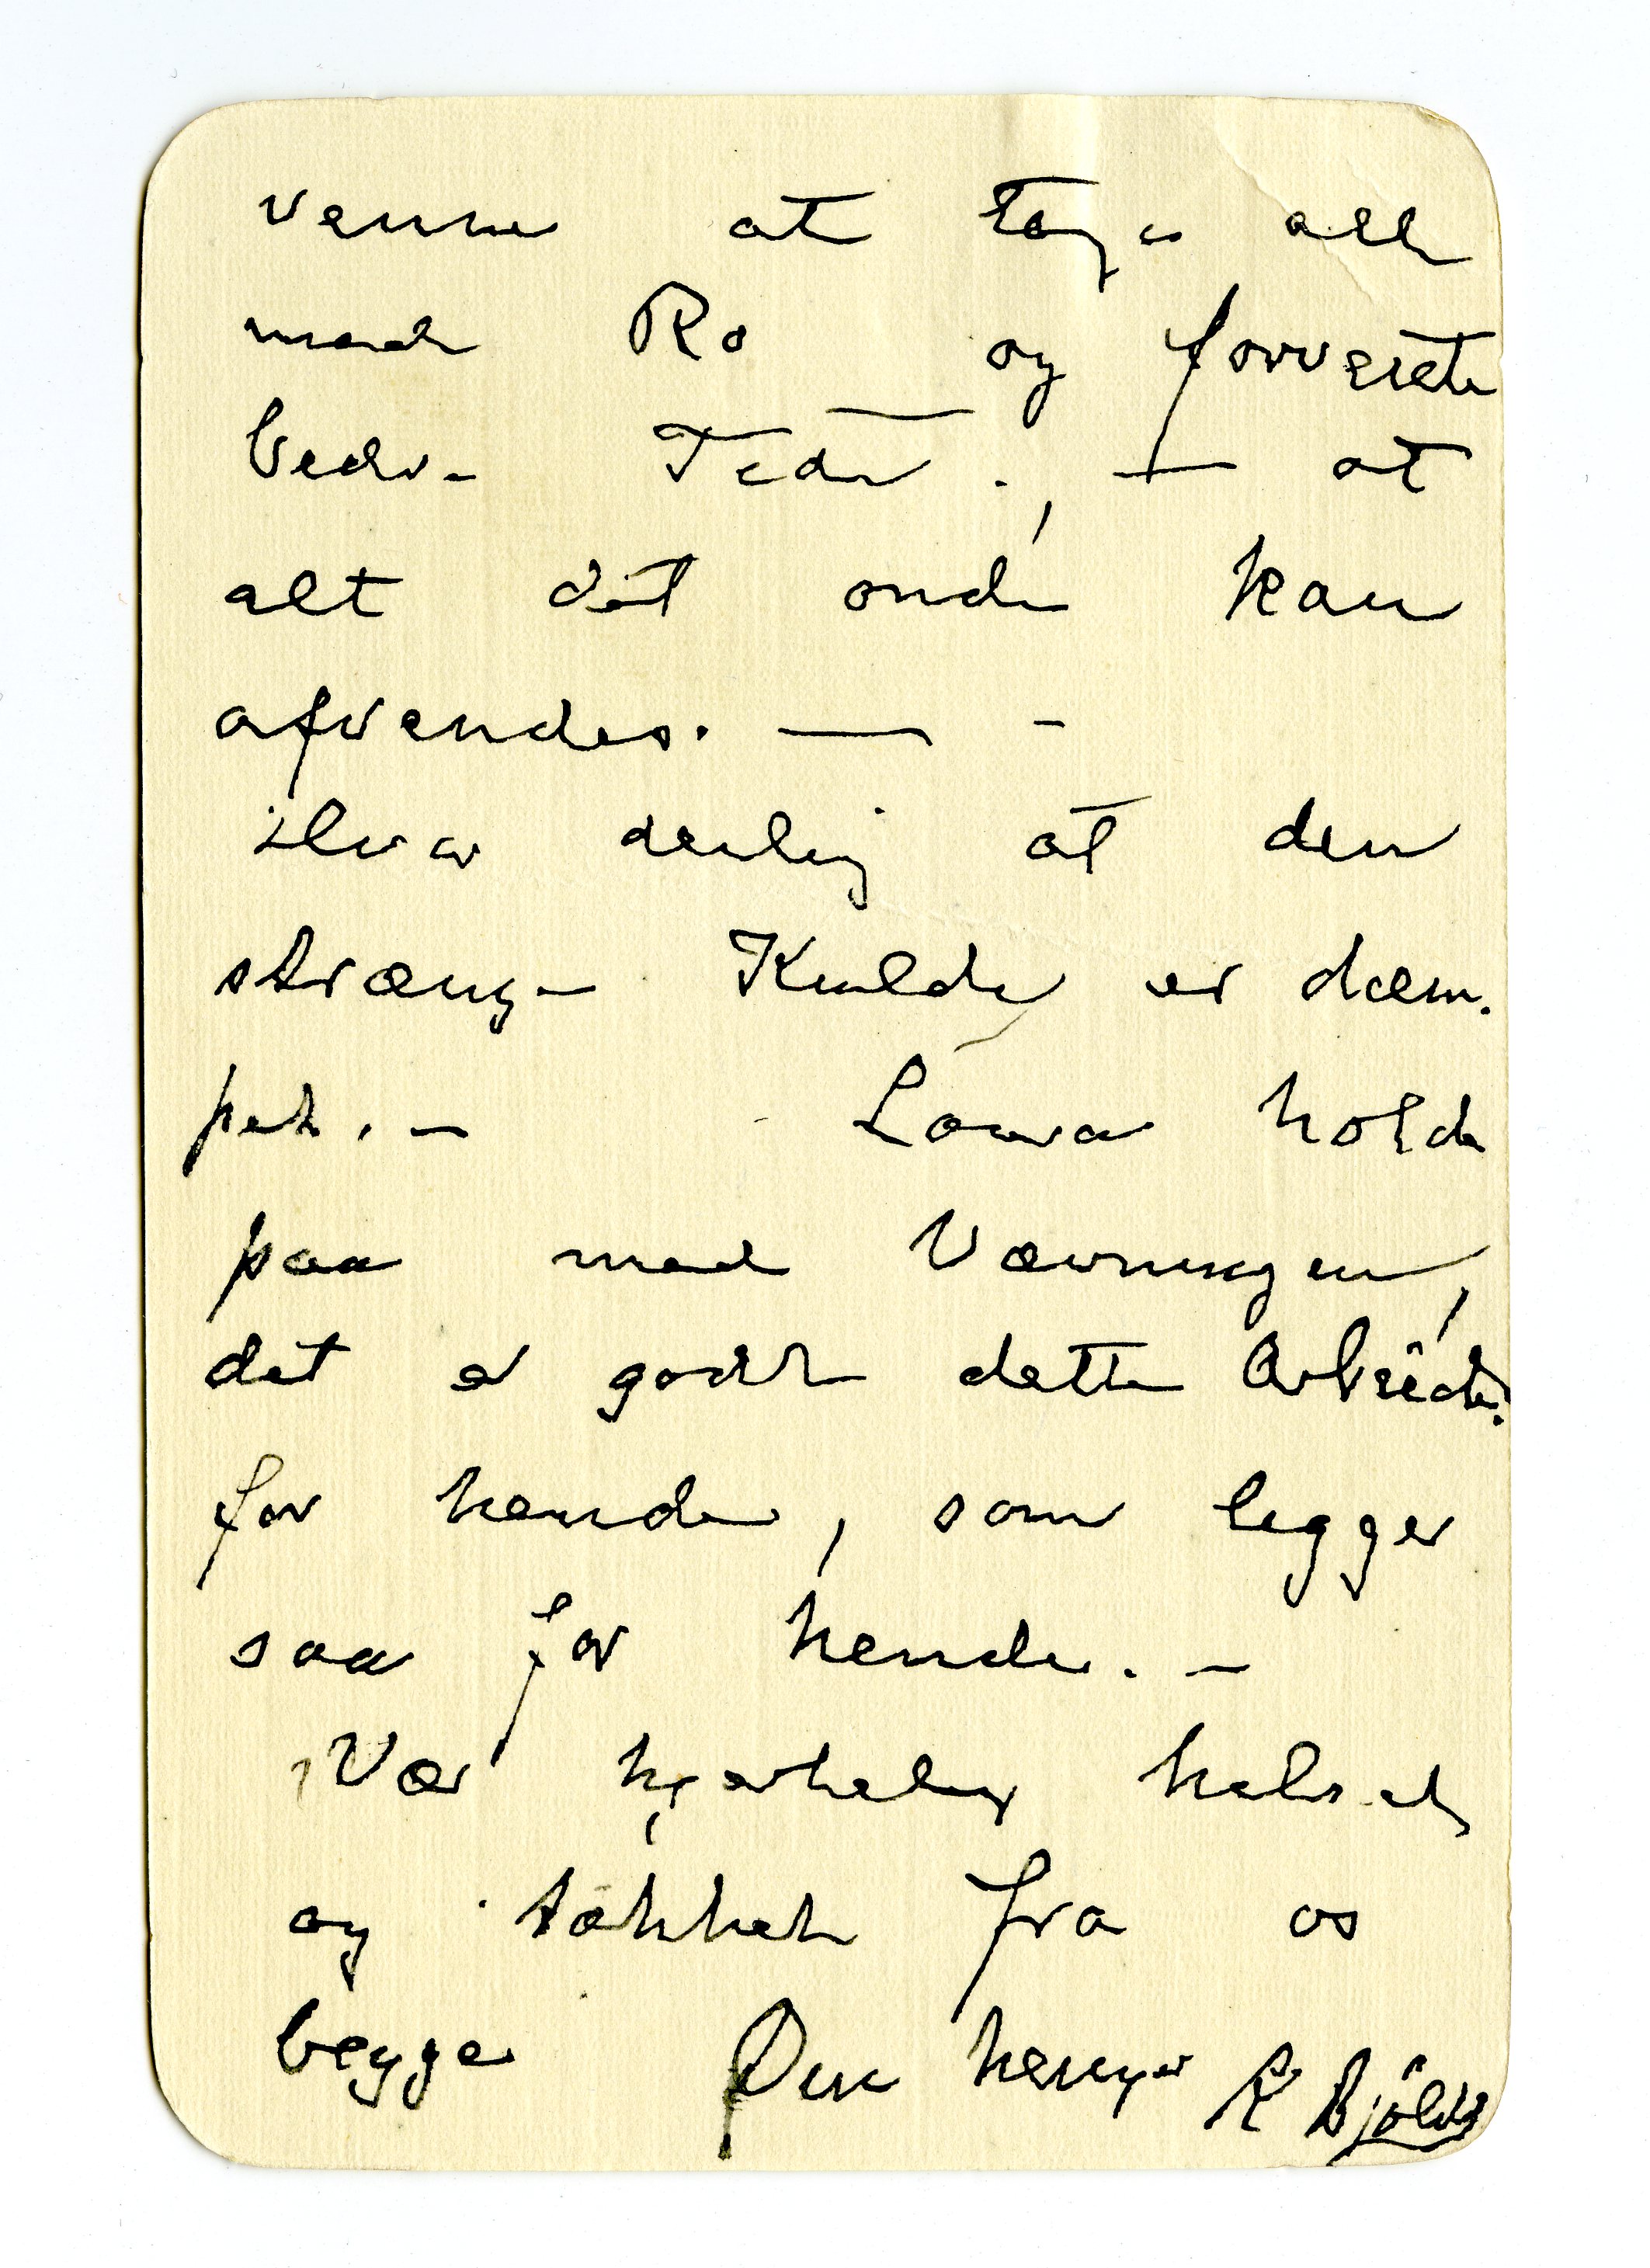 venne at tage alt
med Ro og forvente
bedre Tider., — at
alt det onde kan
afvendes. — -
Hvor deilig at den
strænge Kulde er dæm-
pet. — Lowa holde
paa med Vævningen,
det er godt dette Arbeide
for hende, som legger
saa for hende. —
Vær hjerteligt helset
og takket fra os
begge Din hengivne